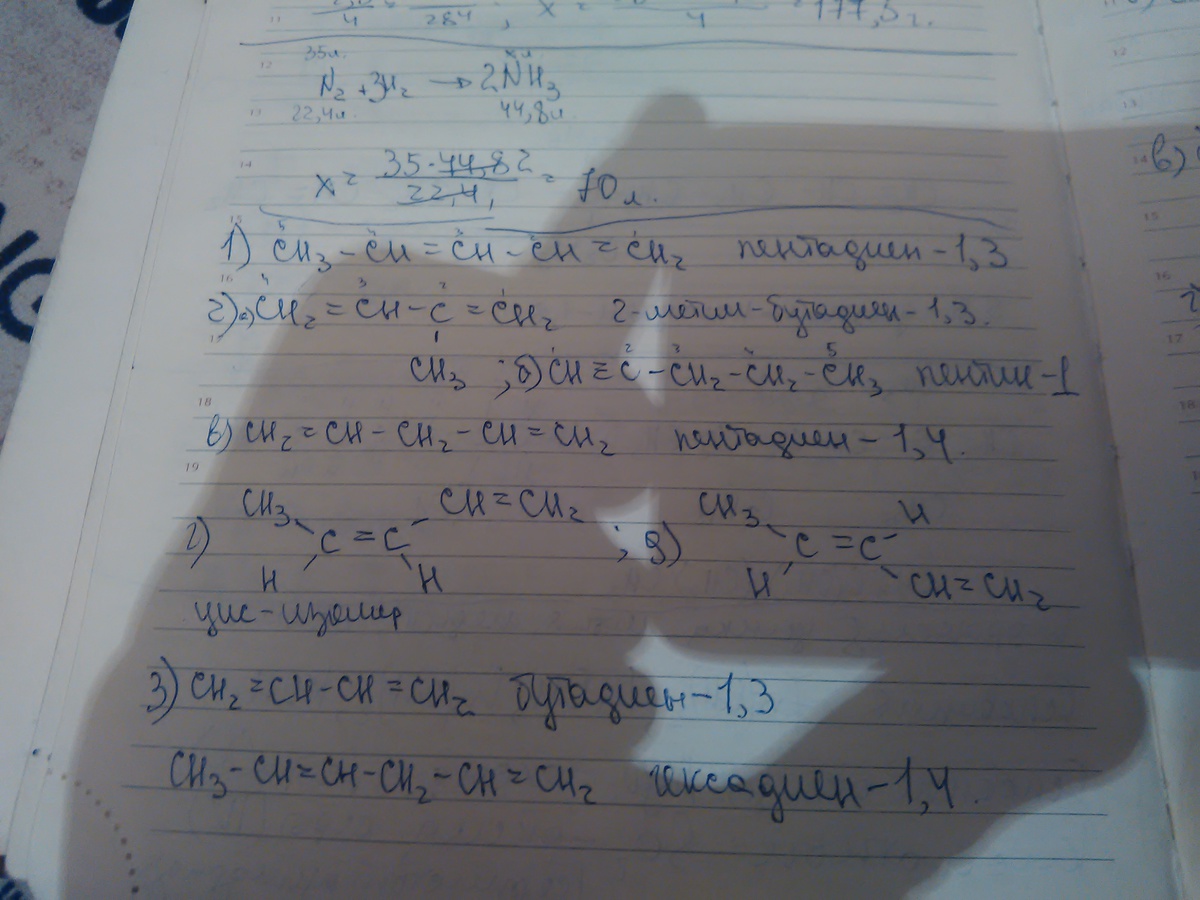 = 177,5 г.
35л. xл
N₂ + 3H₂ → 2NH₃
22,4л. 44,8л
x = 35·44,8 2 / 22,4 1 = 70 л.
1) ⁵CH₃ - ⁴CH = ³CH - ²CH = ¹CH₂ пентадиен-1,3
2) а) ⁴CH₂ = ³CH - ²C = ¹CH₂ 2-метил-бутадиен-1,3.
CH₃ ; б) ¹CH ≡ ²C - ³CH₂ - ⁴CH₂ - ⁵CH₃ пентин-1
в) CH₂ = CH - CH₂ - CH = CH₂ пентадиен-1,4.
CH₃ CH = CH₂ CH₃ H
г) C = C ; д) C = C
H H H CH = CH₂
цис-изомер
3) CH₂ = CH - CH = CH₂ бутадиен-1,3
CH₃ - CH = CH - CH₂ - CH = CH₂ гексадиен-1,4.